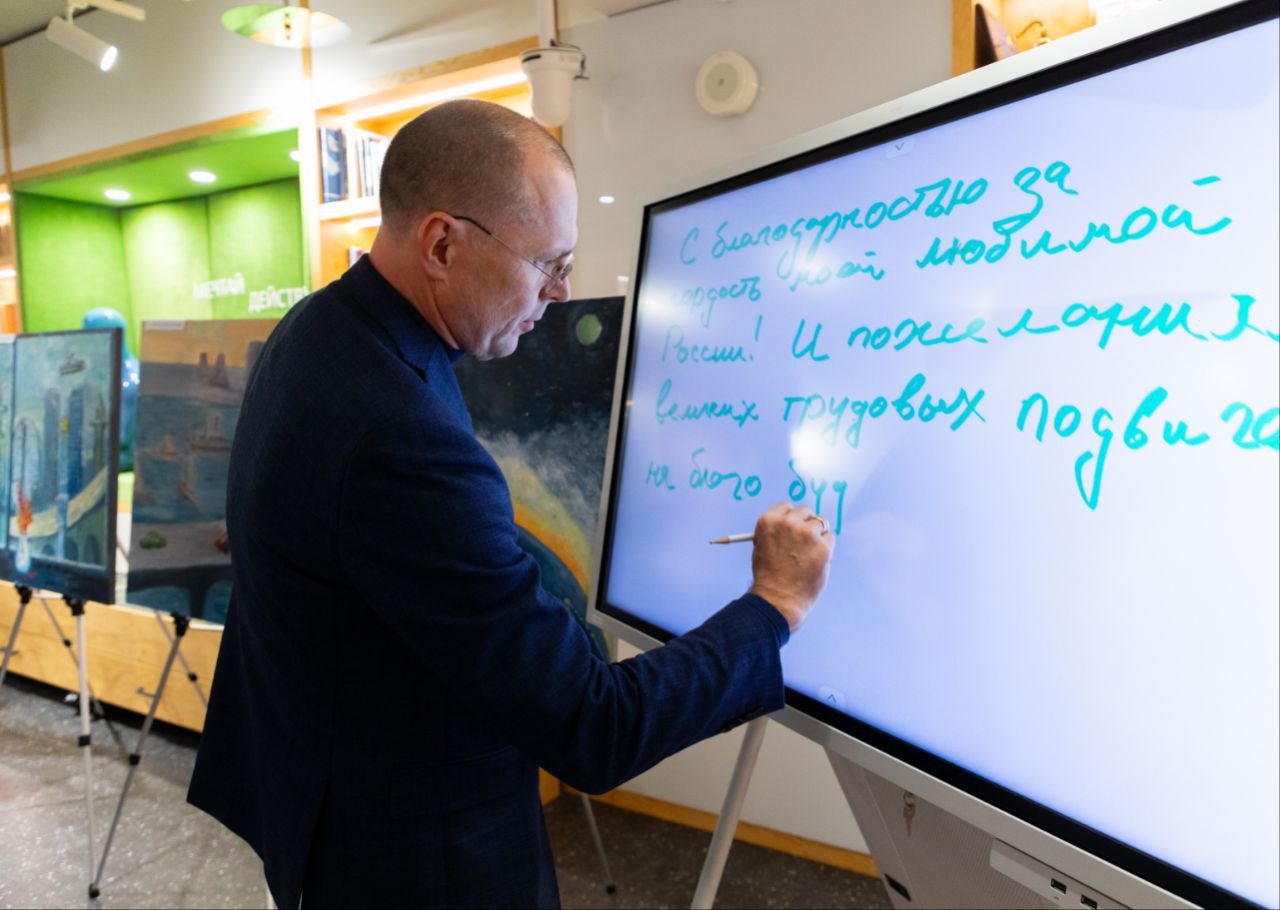 МЕЧТАЙ
ДЕЙСТВ
С благодарностью за
гордость моей любимой
России! И пожеланиях
великих трудовых подвига
на благо буд